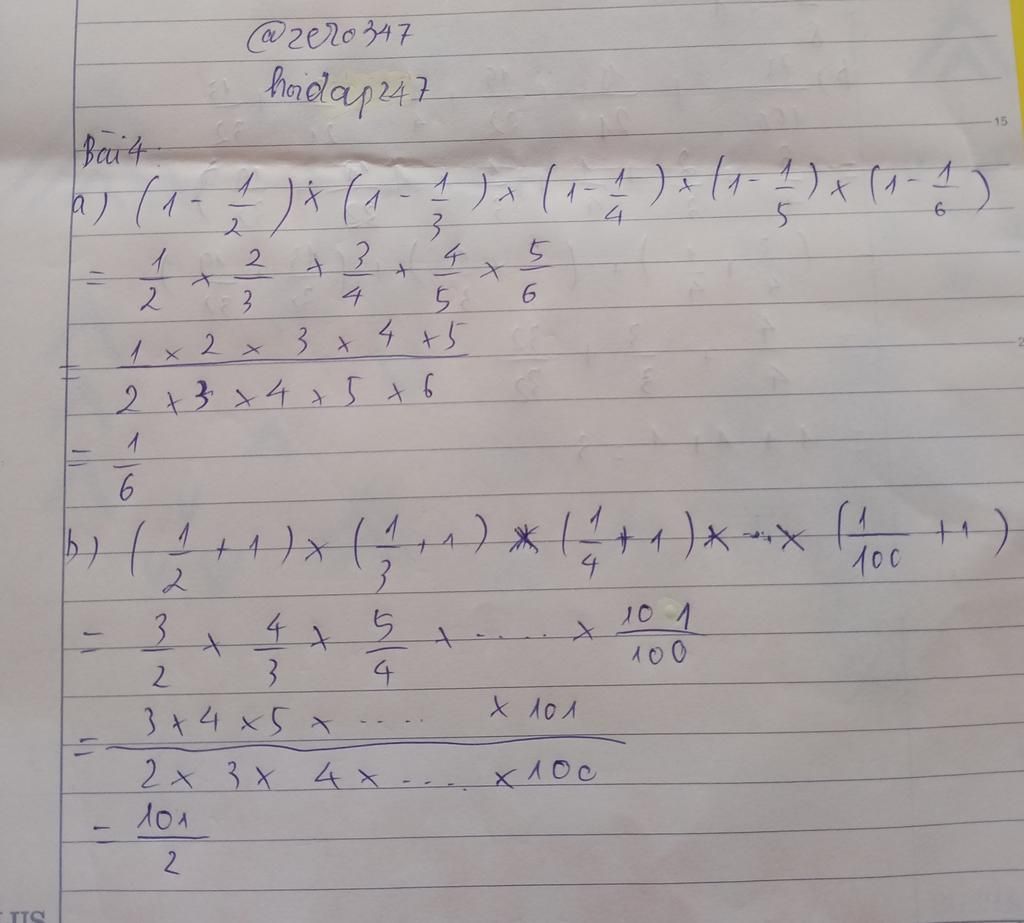 @zero347
hoidap247
15
Bài 4:
a) (1 - 1/2) × (1 - 1/3) × (1 - 1/4) × (1 - 1/5) × (1 - 1/6)
= 1/2 × 2/3 × 3/4 × 4/5 × 5/6
= (1 × 2 × 3 × 4 × 5)/(2 × 3 × 4 × 5 × 6)
= 1/6
b) (1/2 + 1) × (1/3 + 1) × (1/4 + 1) × ... × (1/100 + 1)
= 3/2 × 4/3 × 5/4 × ..... × 101/100
= (3 × 4 × 5 × ..... × 101)/(2 × 3 × 4 × .... × 100)
= 101/2